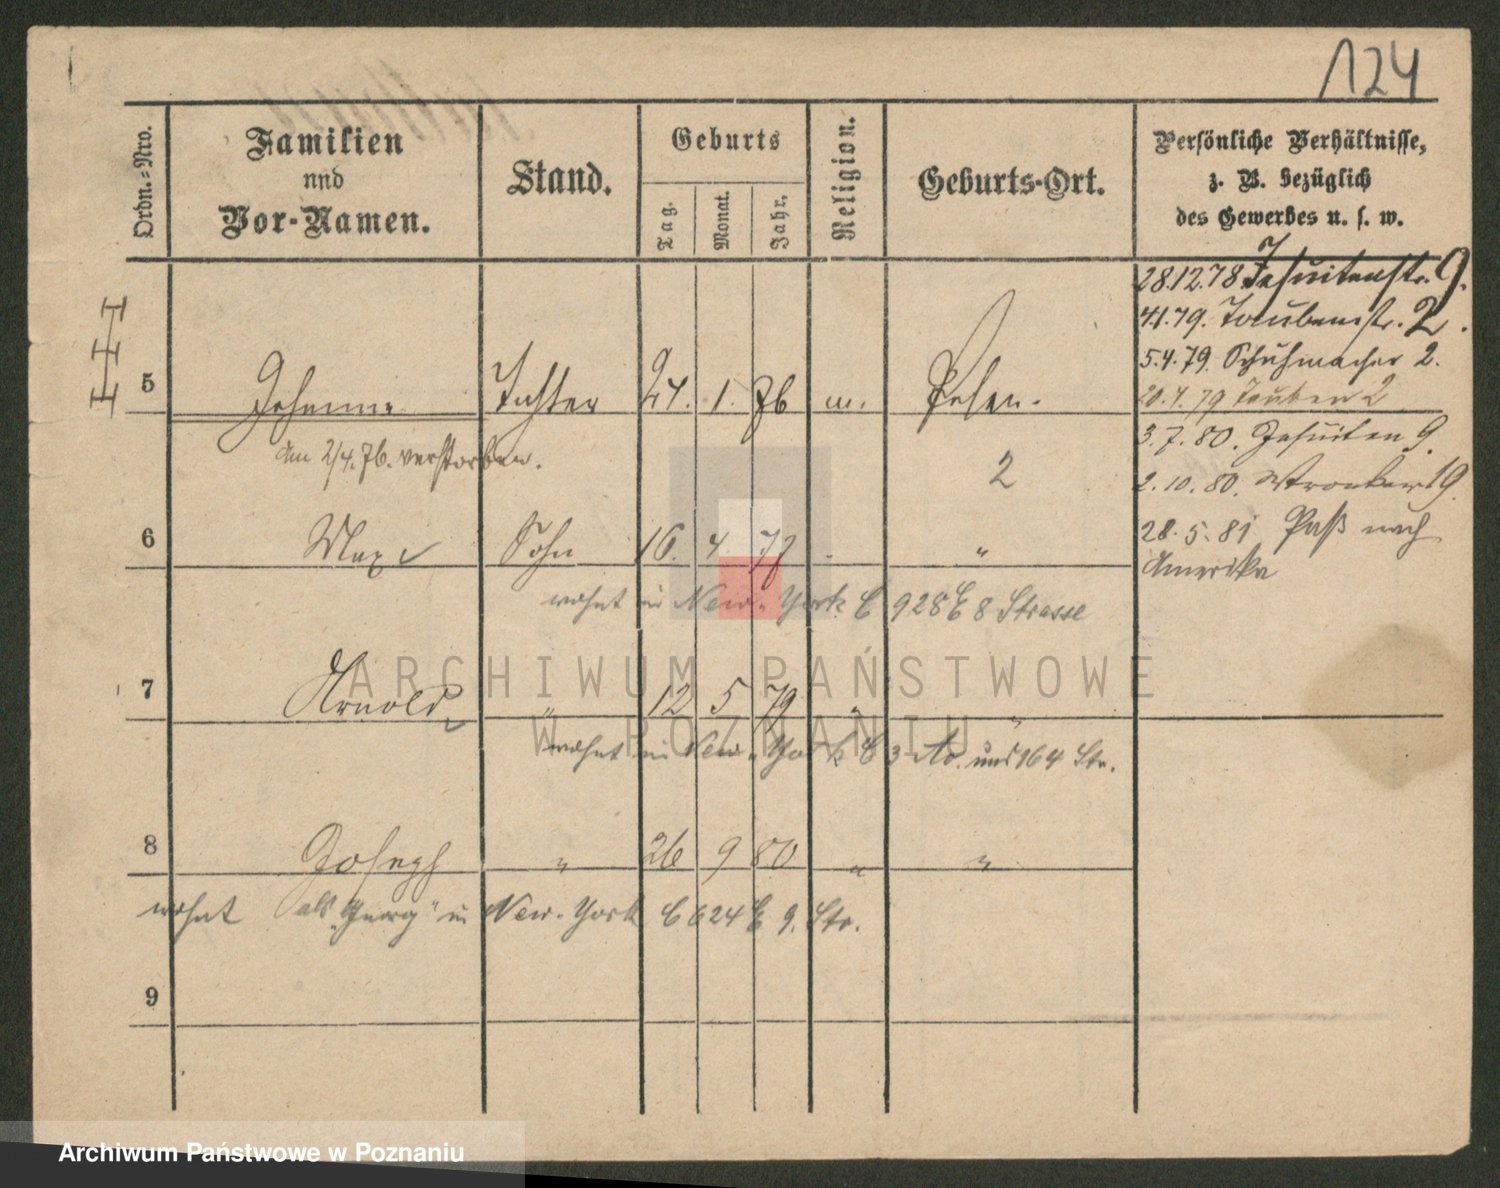 124
Ordn.-Nro.
Familien
und
Vor-Namen.
Stand.
Geburts
Tag.
Monat.
Jahr.
Religion.
Geburts-Ort.
Persönliche Verhältnisse,
z. B. bezüglich
des Gewerbes u. s. w.
28.12.78 Jesuitenstr. 9.
4.1.79. Taubenstr. 2.
5.4.79. Schuhmacher 2.
20.4.79 Tauben 2
3.7.80. Jesuiten 9.
2.10.80. Wronker 19.
28.5.81 Paß nach
Amerika
5 Johanna Tochter 24. 1. 76 m. Posen.
am 2/4. 76. verstorben.
2
6 Max Sohn 16. 4. 77 "
wohnt in New-York C 928 E 8 Strasse
7 Arnold " 12 5 79 " "
wohnt in New-York C 3 Av. und 164 Str.
8 Joseph " 26 9 80 " "
wohnt als "Georg" in New-York C 624 E 9. Str.
9
ARCHIWUM PAŃSTWOWE
W POZNANIU
Archiwum Państwowe w Poznaniu